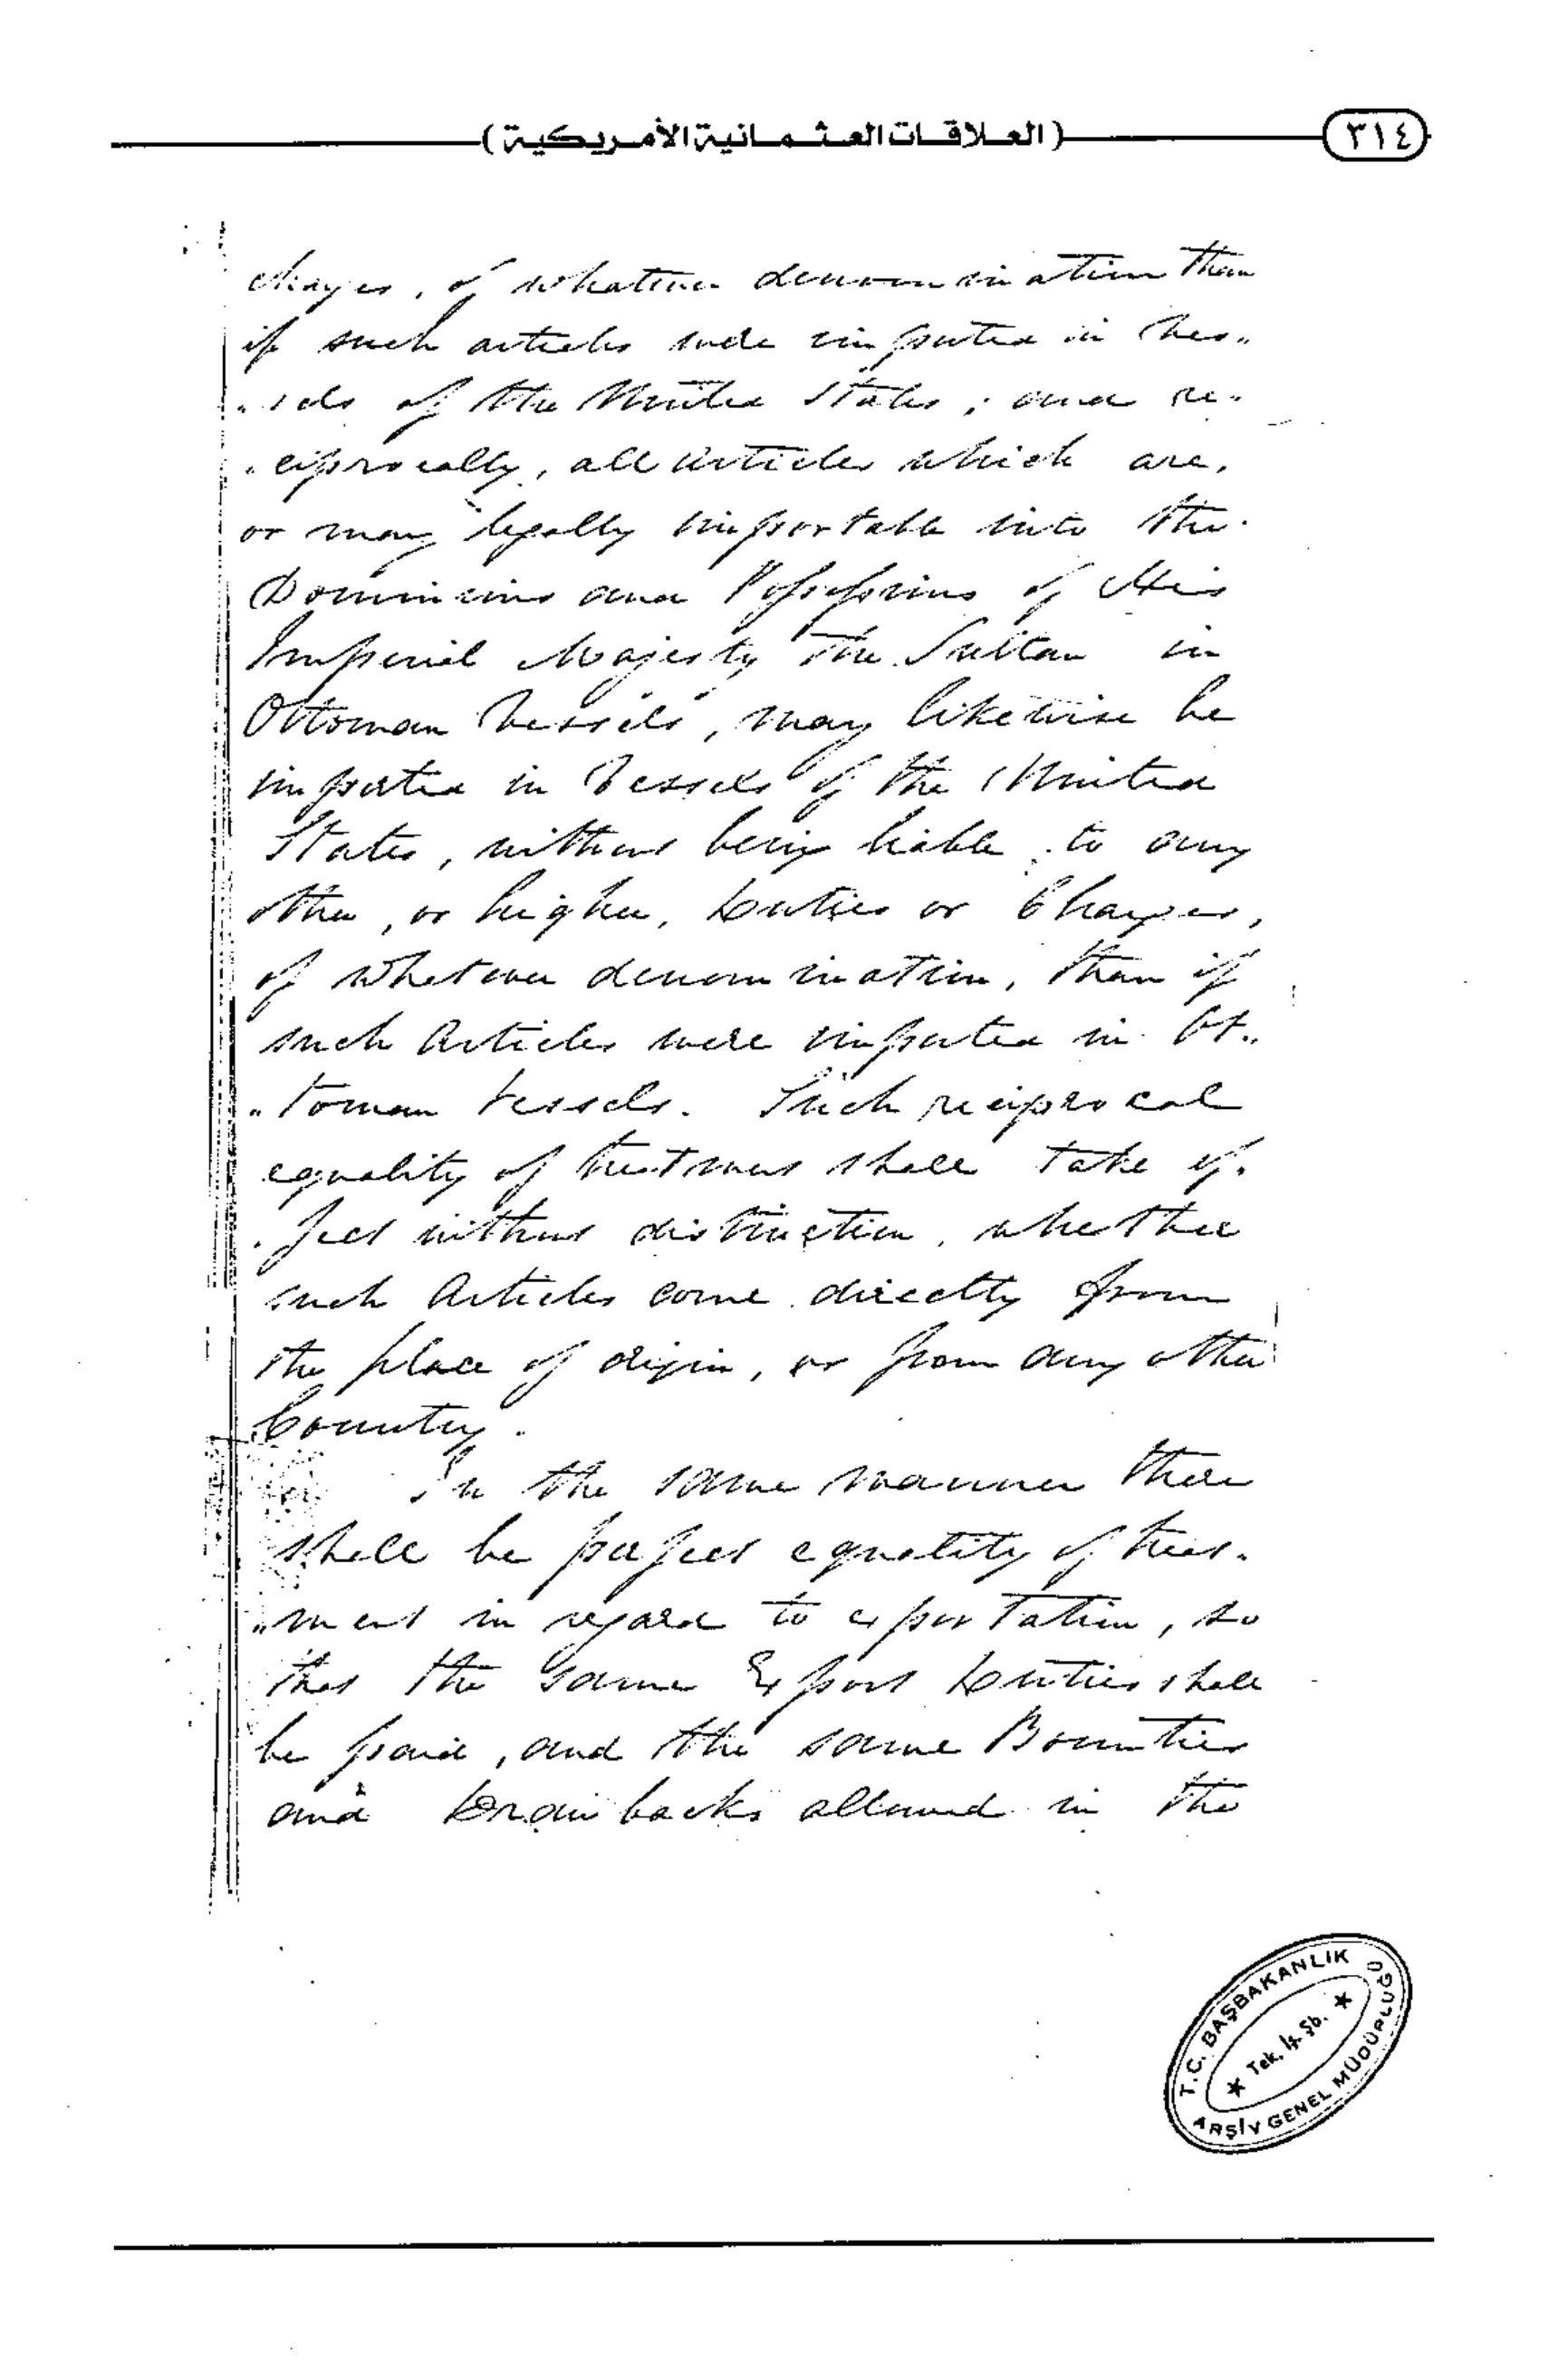 (العلاقات العثمانية الأمريكية)
٣١٤
charges, of whatever denomination than
if such articles were imported in Ves„
„sels of the United States; and re-
-ciprocally, all articles which are,
or may legally importable into the
Dominions and Possessions of His
Imperial Majesty The Sultan in
Ottoman Vessels, may likewise be
imported in Vessels of the United
States, without being liable to any
other, or higher, Duties or Charges,
of whatever denomination, than if
such Articles were imported in Ot„
„toman Vessels. Such reciprocal
equality of treatment shall take ef-
-fect without distinction, whether
such Articles come directly from
the place of origin, or from any other
Country.
In the same manner there
shall be perfect equality of treat-
„ment in regard to exportation, so
that the same Export Duties shall
be paid, and the same Bounties
and Drawbacks allowed in the
T.C. BAŞBAKANLIK
★ Tek. İş. Şb. ★
ARŞİV GENEL MÜDÜRLÜĞÜ